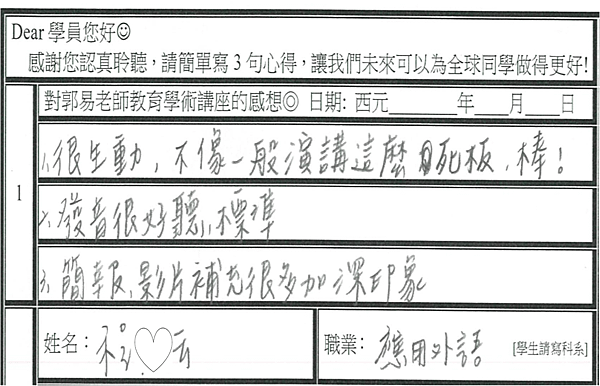 Dear 學員您好☺
感謝您認真聆聽，請簡單寫 3 句心得，讓我們未來可以為全球同學做得更好!
對郭易老師教育學術講座的感想◎ 日期: 西元______年___月___日
1
1.很生動，不像一般演講這麼死板，棒！
2.發音很好聽、標準
3.簡報、影片補充很多加深印象
姓名：程♡云
職業：應用外語 [學生請寫科系]